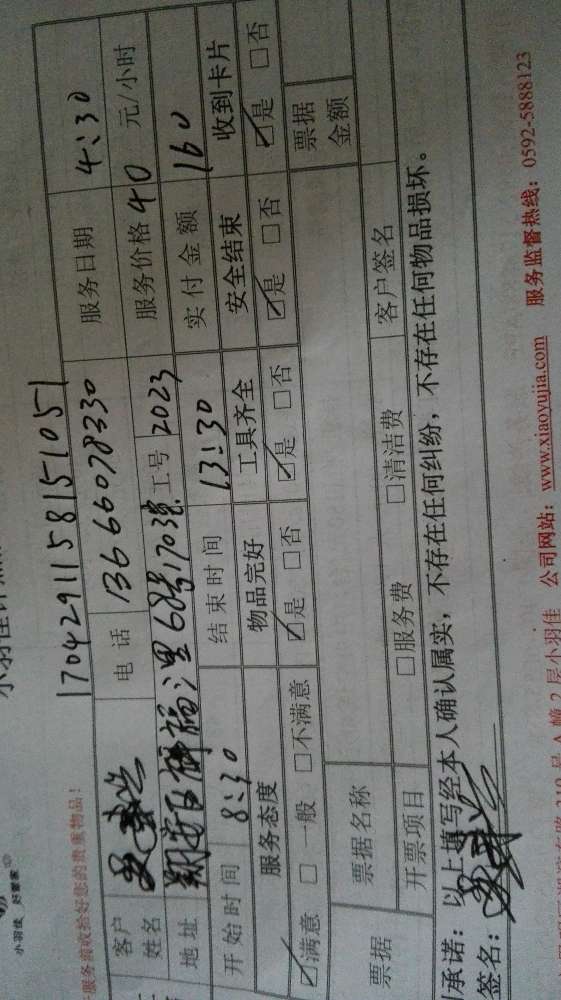 小羽佳 好管家
服务前收拾好您的贵重物品!
1704291158151051
客户姓名 电话 13666078330 服务日期 4:30
地址 翔安区 福 里68号1703室 工号 2023 服务价格 40 元/小时
开始时间 8:30 结束时间 13:30 实付金额 160
服务态度 物品完好 工具齐全 安全结束 收到卡片
☑满意 □一般 □不满意 ☑是 □否 ☑是 □否 ☑是 □否 ☑是 □否
票据 票据名称 票据金额
开票项目 □服务费 □清洁费 客户签名
承诺:以上填写经本人确认属实,不存在任何纠纷,不存在任何物品损坏。
签名:
310号A幢2层小羽佳 公司网站:www.xiaoyujia.com 服务监督热线:0592-5888123